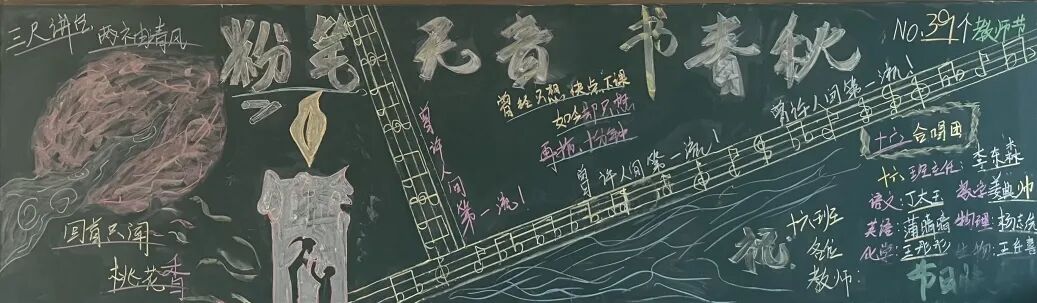 三尺讲台 两衣由青风
粉笔 无音 书春秋
No.39个教师节
曾经不想,快点下课
如今却只想
再拖十分钟
曾许人间第一流!
曾许人间第一流!
曾许人间第一流!
回首只闻
桃花香
十六 合唱团
十六班主任:李东森
语文:丁太王 数学:姜典帅
英语:蒲腩腩 物理:
化学:王彤彤 生物:
祝
十六班
各位
教师:
节日